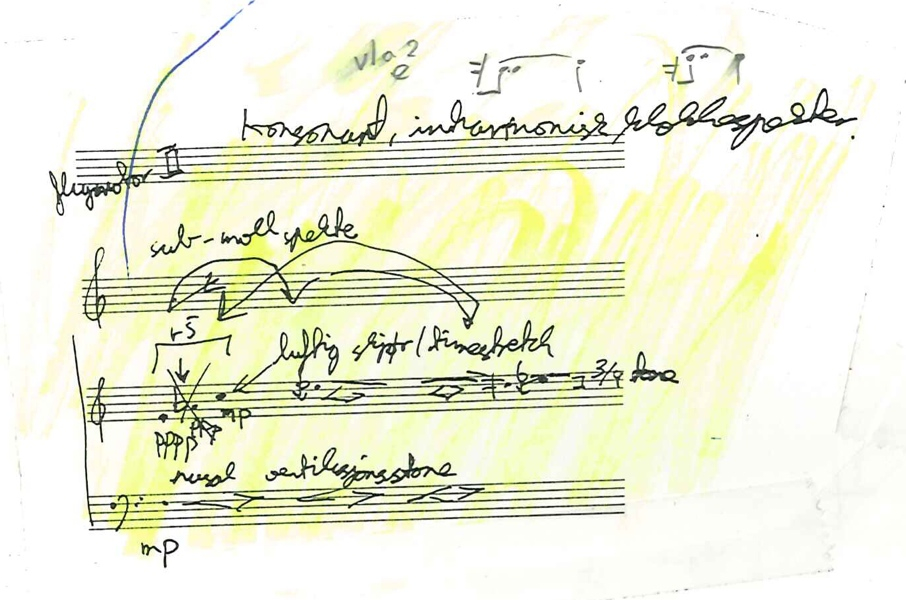 vla 2
e
Konsonant, inharmonisk klokkespekter.
flymotor II
sub-moll spekter
r5
luftig skjør/timestretch
3/4 tone
mp
pppp ppp
nasal ventilasjonstone
mp